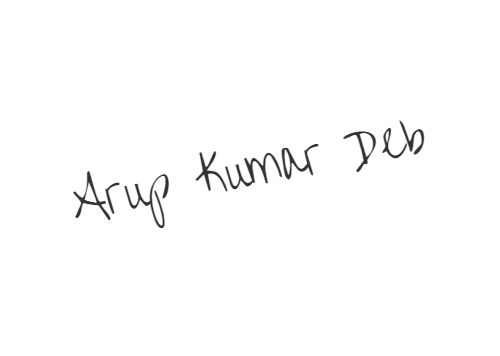 Arup Kumar Deb